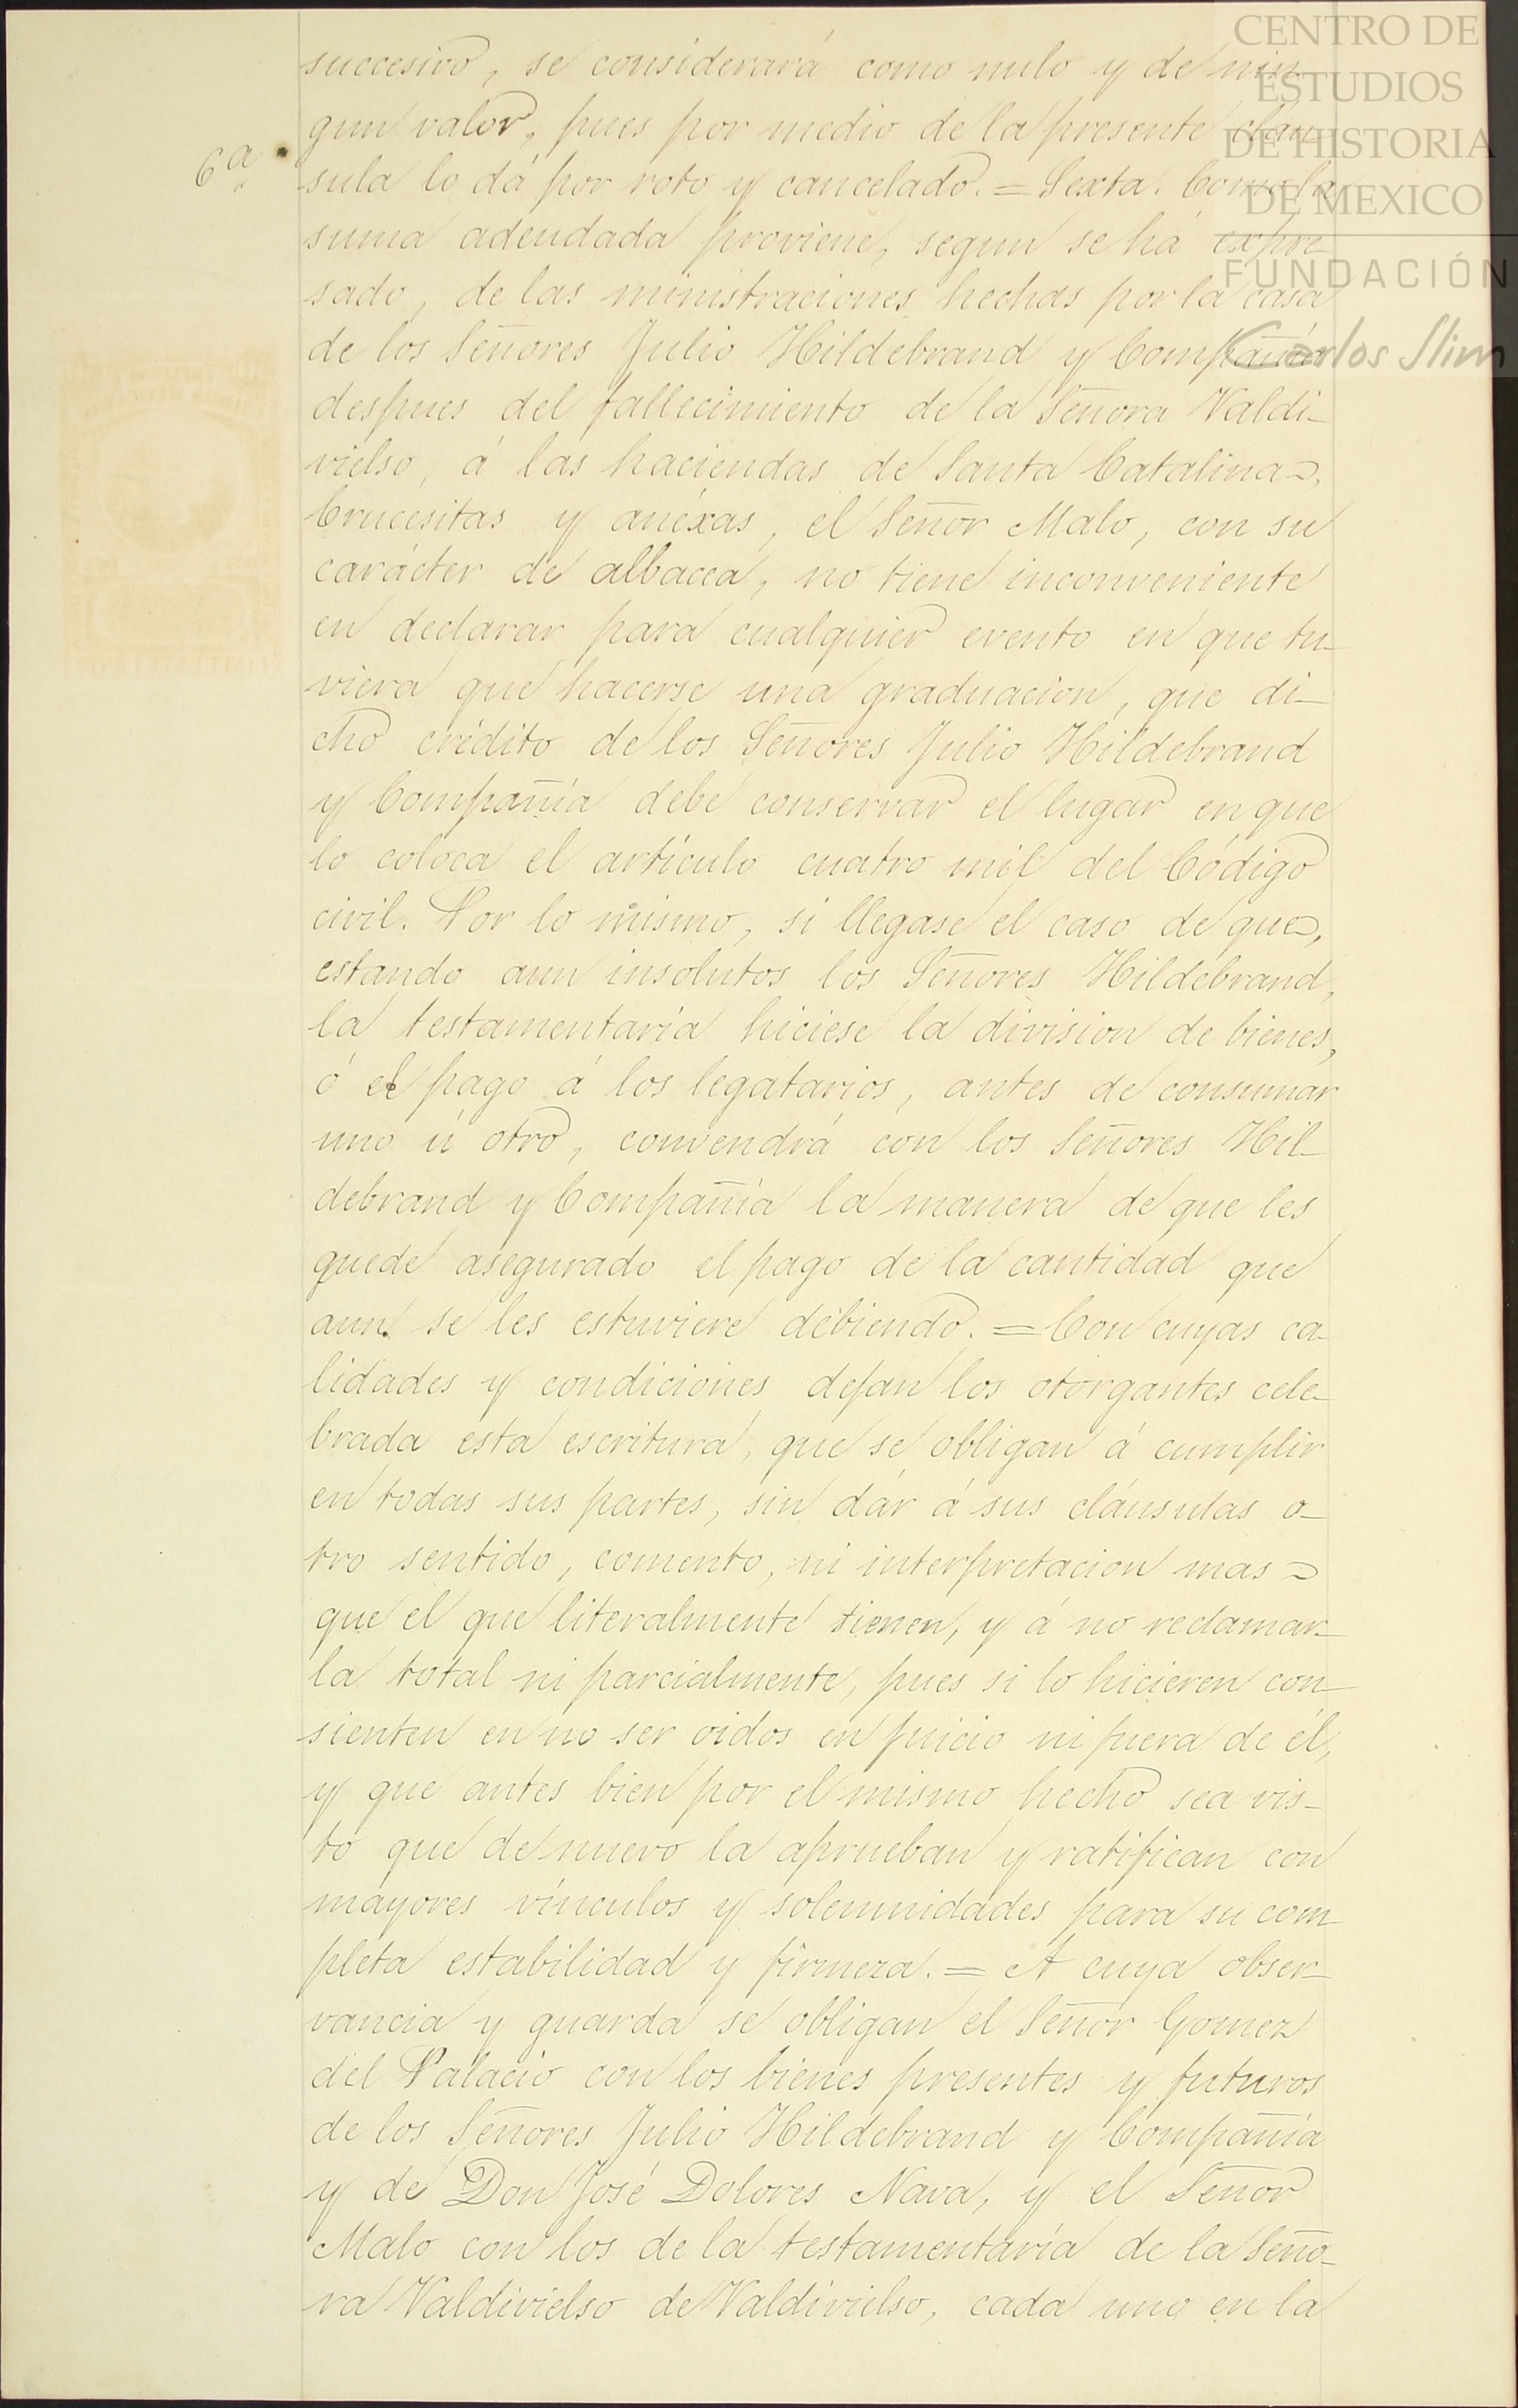 CENTRO DE
ESTUDIOS
DE HISTORIA
DE MEXICO
FUNDACIÓN
Carlos Slim
succesivo, se considerará como nulo y de nin-
gun valor, pues por medio de la presente cláu-
6ª
sula lo dá por roto y cancelado. = Sexta. Como la
suma adeudada proviene, segun se ha expre-
sado, de las ministraciones hechas por la casa
de los Señores Julio Hildebrand y Compañía
despues del fallecimiento de la Señora Valdi-
vielso, á las haciendas de Santa Catalina,
Crucesitas y anéxas, el Señor Malo, con su
carácter de albacea, no tiene inconveniente
en declarar para cualquier evento en que tu-
viera que hacerse una graduacion, que di-
cho crédito de los Señores Julio Hildebrand
y Compañía debe conservar el lugar en que
lo coloca el artículo cuatro mil del Código
civil. Por lo mismo, si llegase el caso de que,
estando aun insolutos los Señores Hildebrand,
la testamentaría hiciese la division de bienes,
ó el pago á los legatarios, antes de consumar
uno ú otro, convendrá con los Señores Hil-
debrand y Compañía la manera de que les
quede asegurado el pago de la cantidad que
aun se les estuviere debiendo. = Con cuyas ca-
lidades y condiciones dejan los otorgantes cele-
brada esta escritura, que se obligan á cumplir
en todas sus partes, sin dár á sus cláusulas o-
tro sentido, comento, ni interpretacion mas
que el que literalmente tienen, y á no reclamar-
la total ni parcialmente, pues si lo hicieren con-
sienten en no ser oidos en juicio ni fuera de él,
y que antes bien por el mismo hecho sea vis-
to que de nuevo la aprueban y ratifican con
mayores vínculos y solemnidades para su com-
pleta estabilidad y firmeza. = A cuya obser-
vancia y guarda se obligan el Señor Gomez
del Palacio con los bienes presentes y futuros
de los Señores Julio Hildebrand y Compañía
y de Don José Dolores Nava, y el Señor
Malo con los de la testamentaría de la Seño-
ra Valdivielso de Valdivielso, cada uno en la